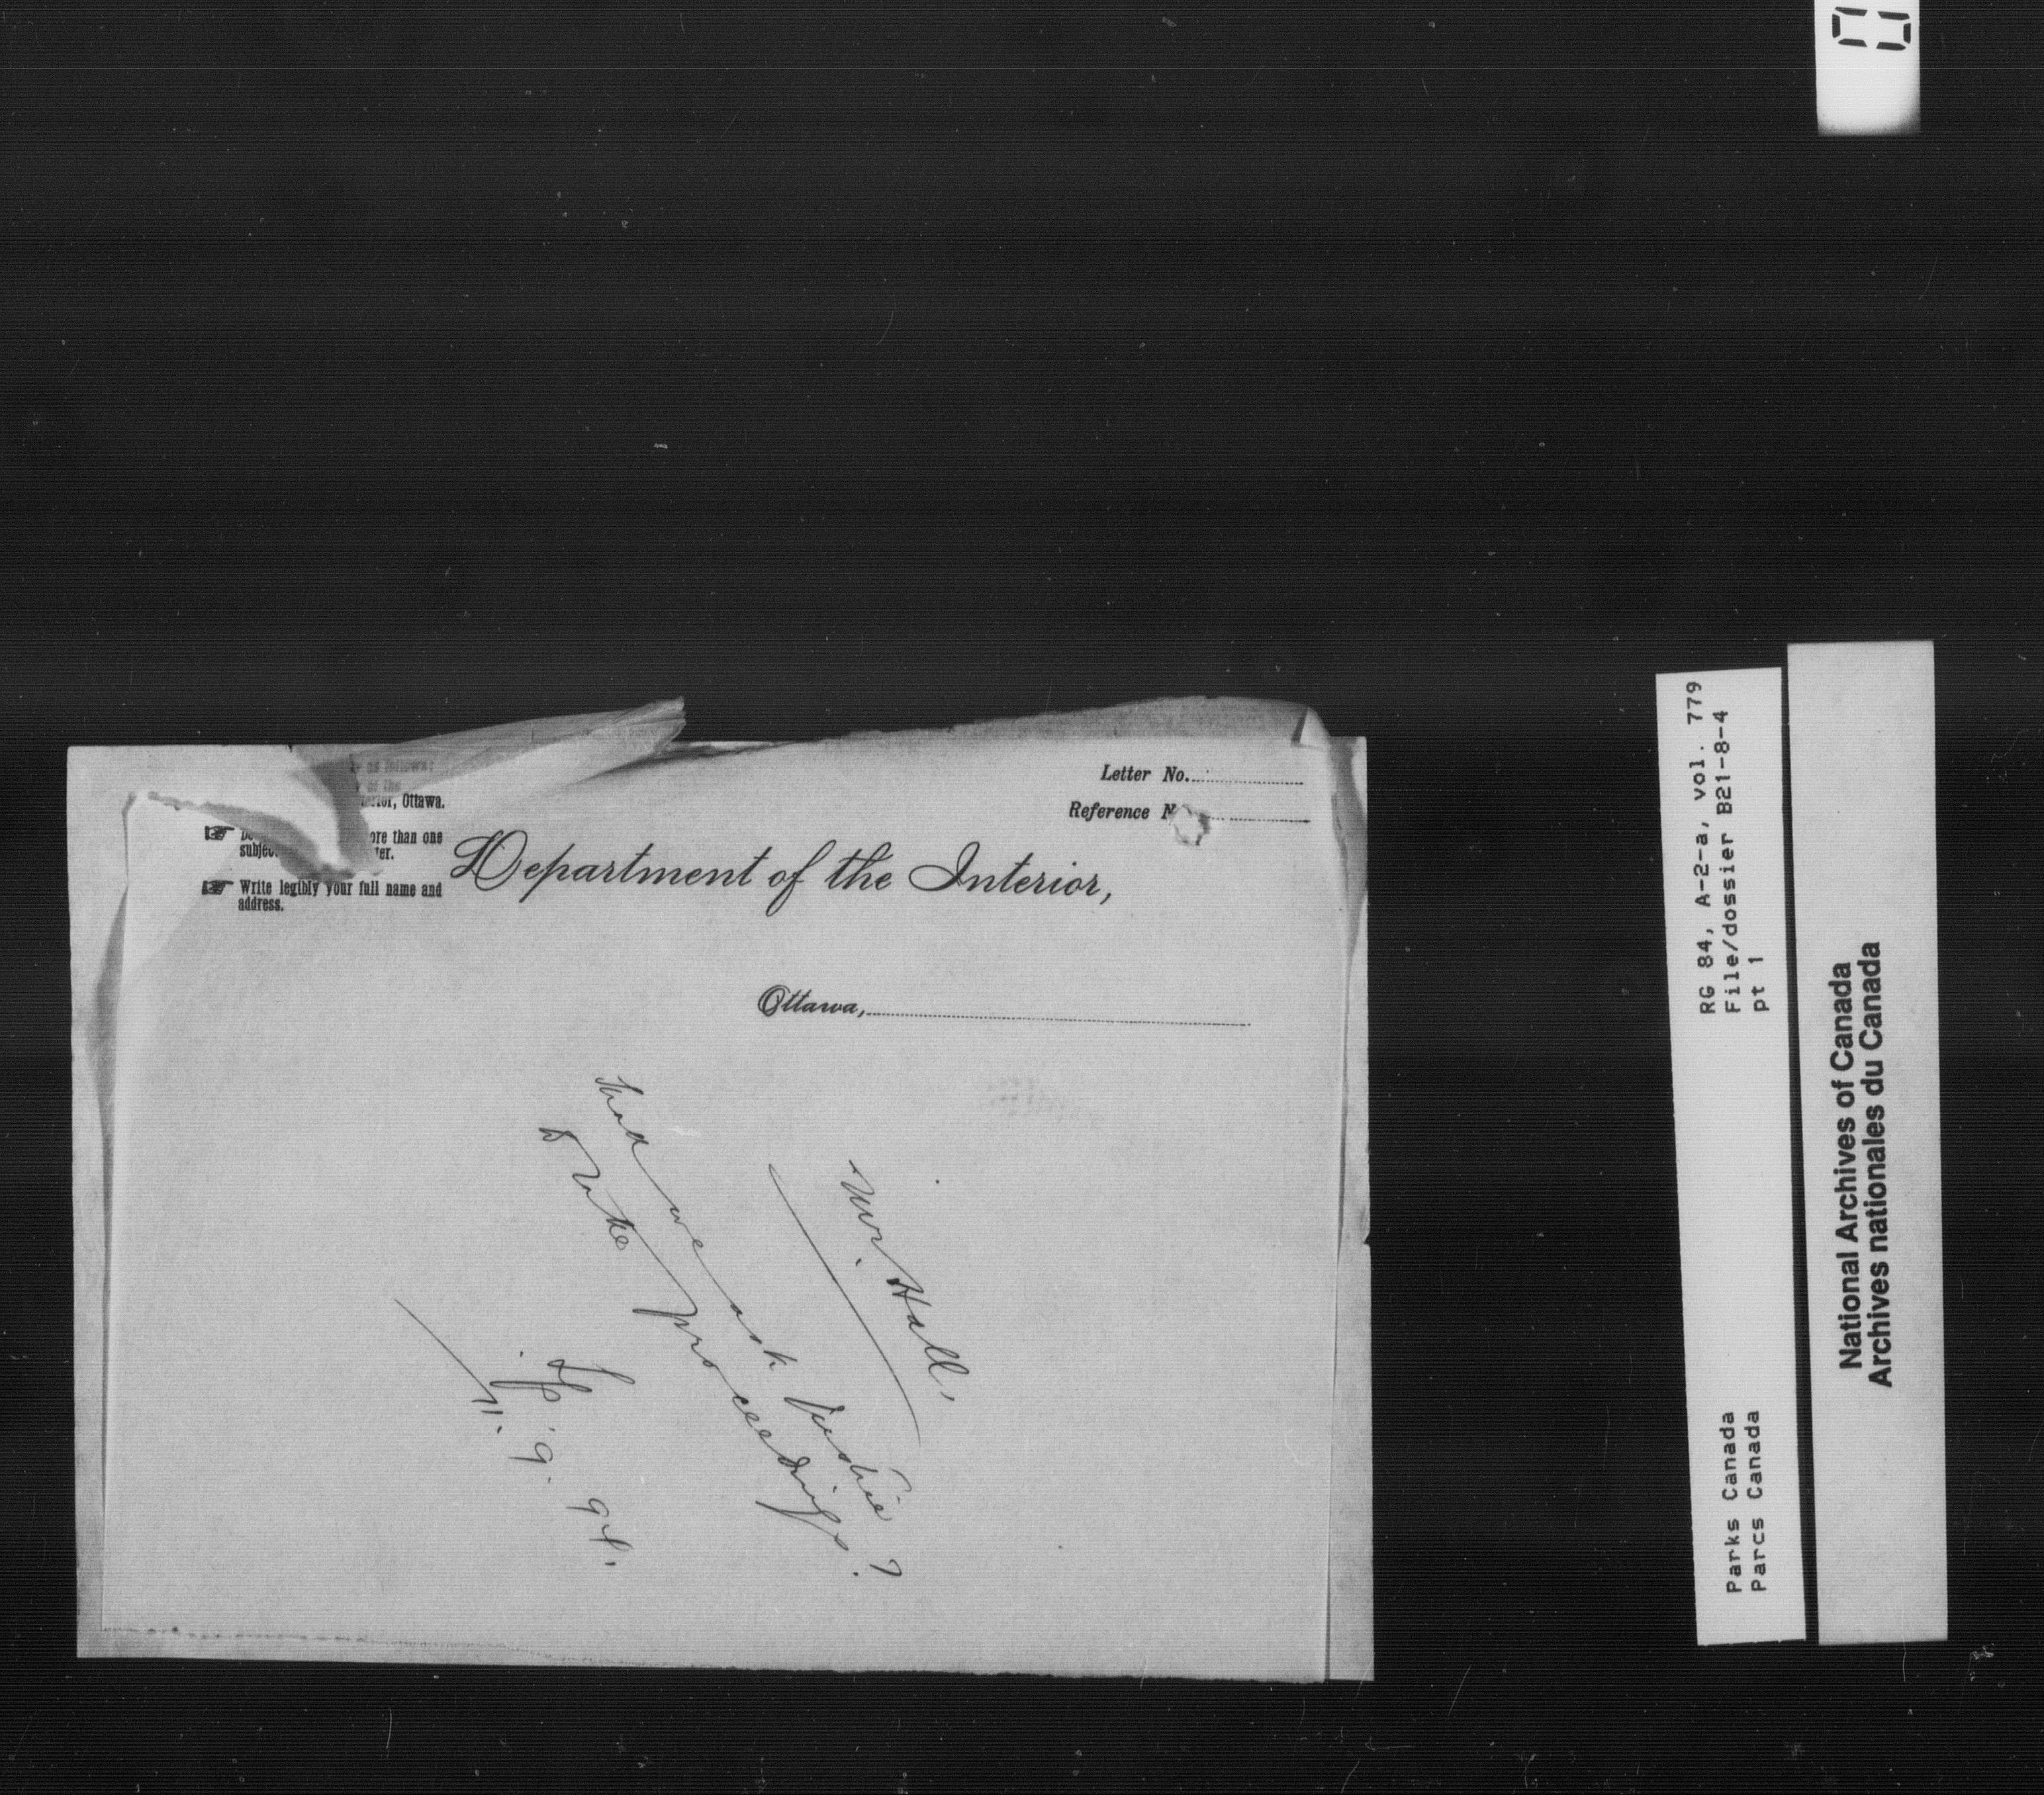 as follows:
of the
terior, Ottawa.
ore than one
subjec ter.
Write legibly your full name and
address.
Letter No.
Reference N
Department of the Interior,
Ottawa,
Mr. Hall,
Had we ask Justice
to take proceedings?
11. 9. 94.
RG 84, A-2-a, vol. 779
File/dossier B21-8-4
pt 1
Parks Canada
Parcs Canada
National Archives of Canada
Archives nationales du Canada